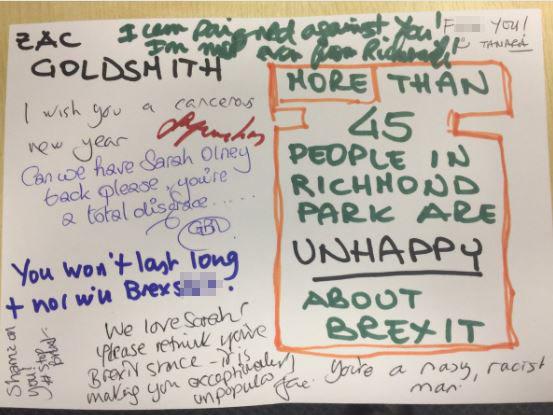 ZAC
GOLDSMITH
I campaigned against you!
I'm not even from Richmond!
F YOU!
TAMARA
I wish you a cancerous
new year
Can we have Sarah Olney
back please, you're
a total disgrace......
GBD
You won't last long
+ nor will Brexs
Shame on
you!
We love Sarah
Please rethink you're
Brexit stance - it is
making you exceptionally
unpopular
MORE THAN
45
PEOPLE IN
RICHMOND
PARK ARE
UNHAPPY
ABOUT
BREXIT
You're a nasy, racist
man.